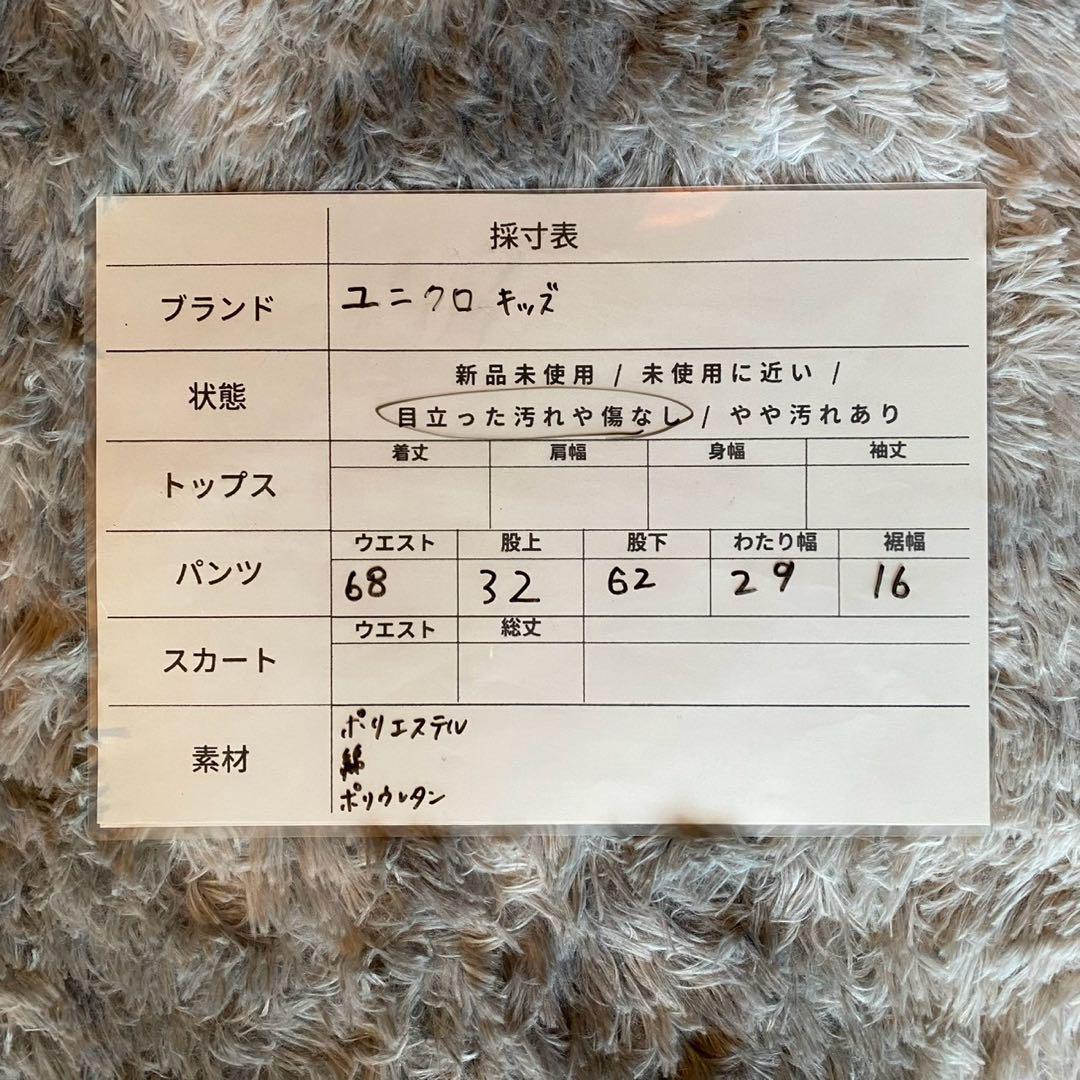 採寸表
ブランド ユニクロ キッズ
状態 新品未使用 / 未使用に近い /
目立った汚れや傷なし / やや汚れあり
トップス 着丈 肩幅 身幅 袖丈
パンツ ウエスト 股上 股下 わたり幅 裾幅
68 32 62 29 16
スカート ウエスト 総丈
素材 ポリエステル
綿
ポリウレタン